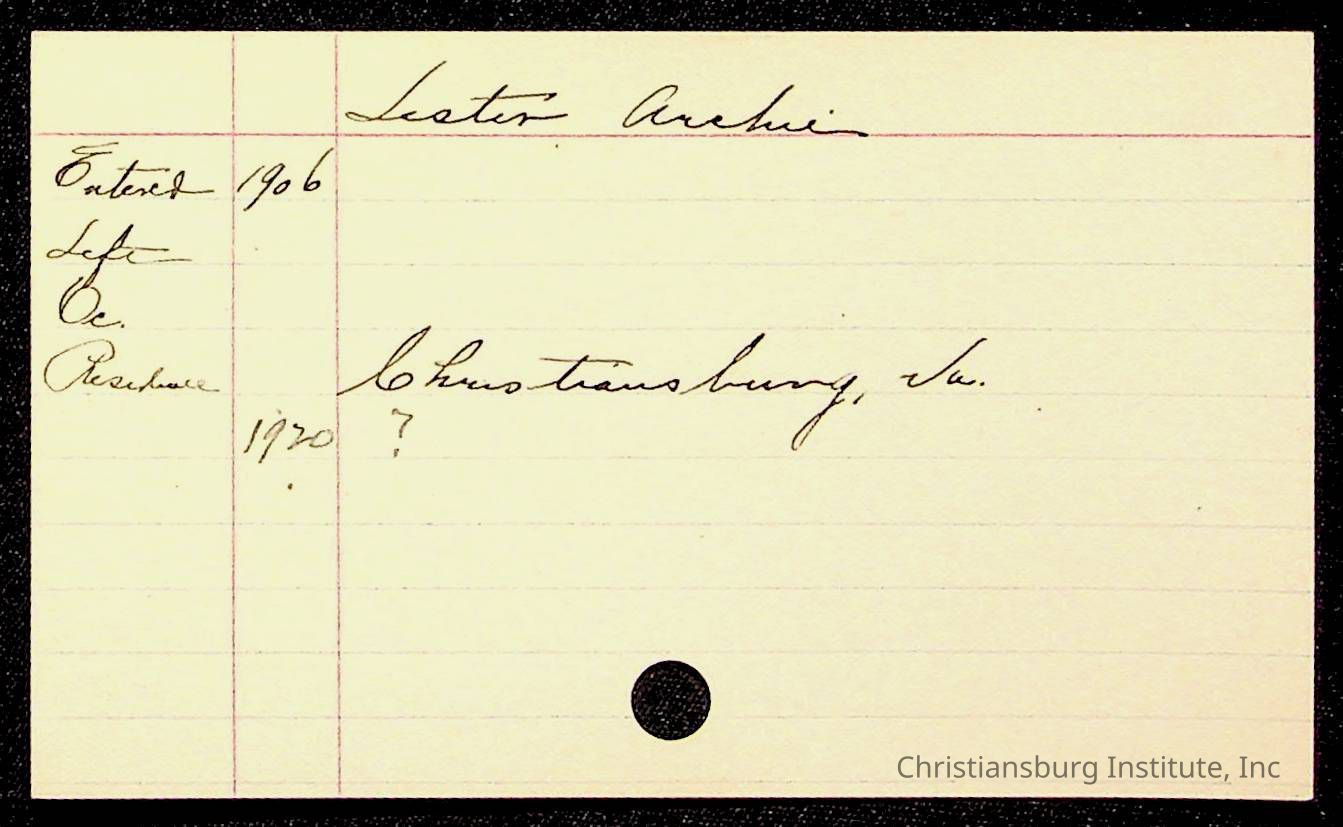 Lester Archie
Entered 1906
Left
Oc.
Residence Christiansburg, Va.
1920 ?
Christiansburg Institute, Inc